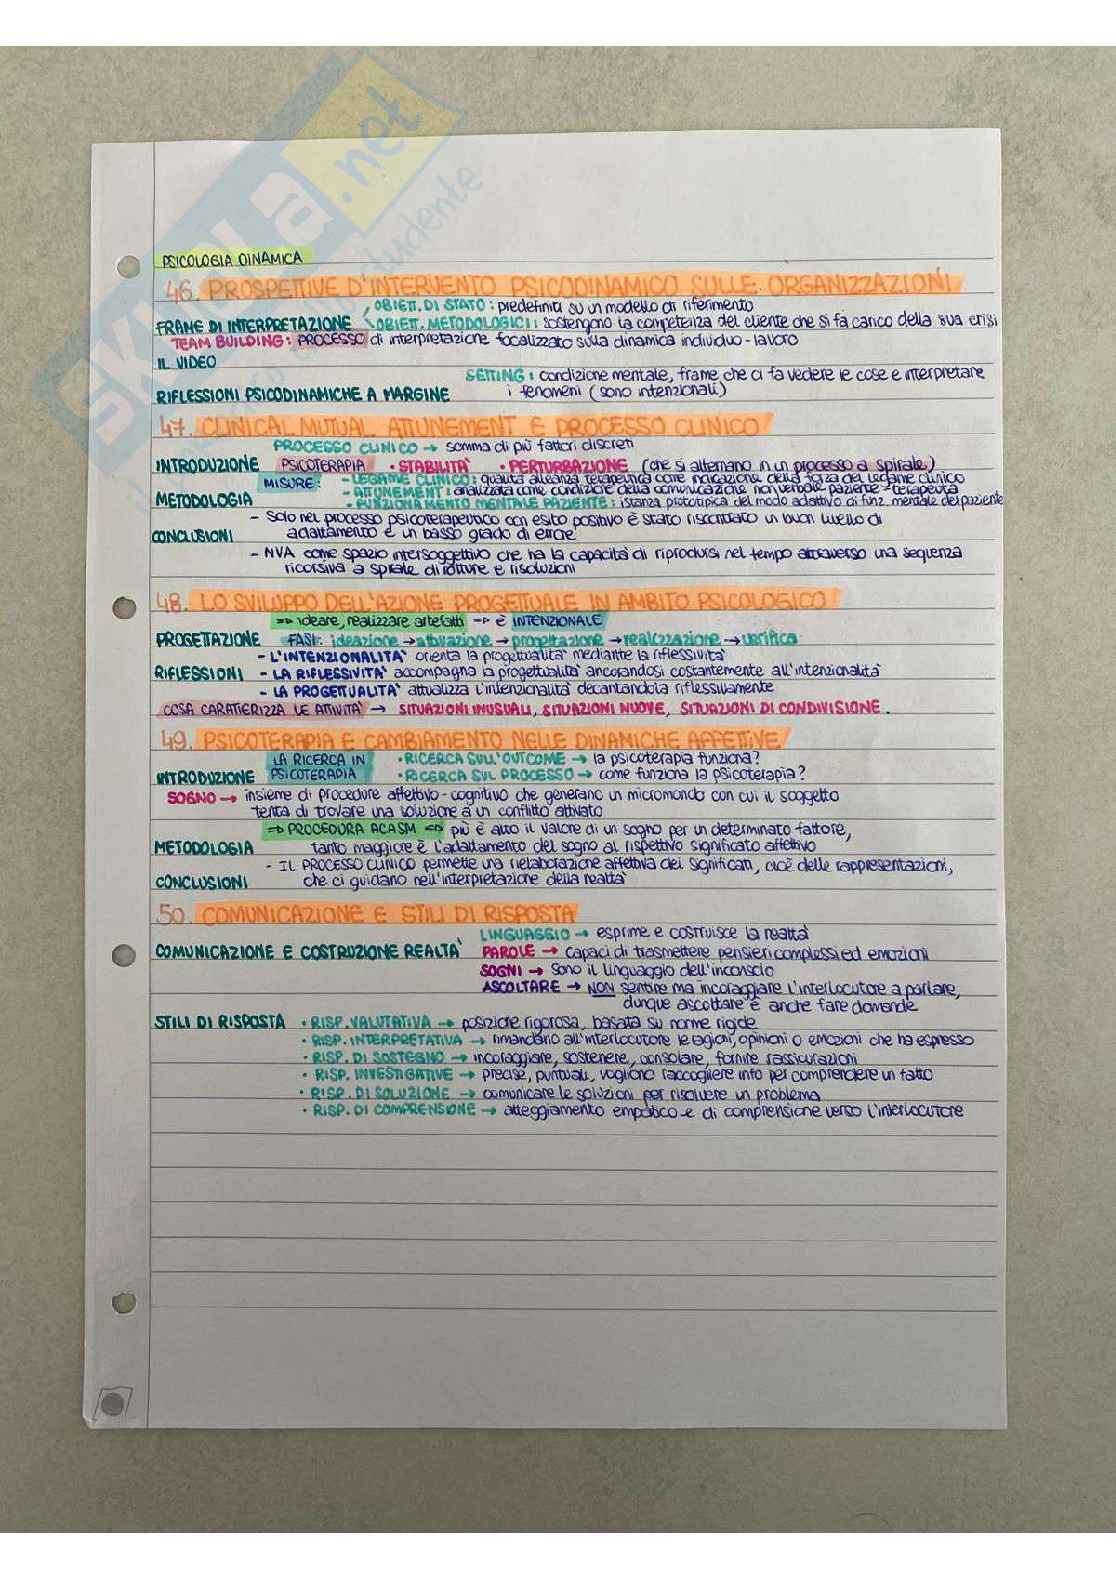 SKUOLA.net
PSICOLOGIA DINAMICA
46. PROSPETTIVE D'INTERVENTO PSICODINAMICO SULLE ORGANIZZAZIONI
OBIETT. DI STATO: predefiniti su un modello di riferimento
FRAME DI INTERPRETAZIONE OBIETT. METODOLOGICI: sostengono la competenza del cliente che si fa carico della sua crisi
TEAM BUILDING: PROCESSO di interpretazione focalizzato sulla dinamica individuo-lavoro
IL VIDEO
SETTING: condizione mentale, frame che ci fa vedere le cose e interpretare
RIFLESSIONI PSICODINAMICHE A MARGINE i fenomeni (sono intenzionali)
47. CLINICAL MUTUAL ATTUNEMENT E PROCESSO CLINICO
PROCESSO CLINICO → somma di più fattori discreti
INTRODUZIONE PSICOTERAPIA • STABILITA' • PERTURBAZIONE (che si alternano in un processo a spirale)
MISURE: - LEGAME CLINICO: qualità alleanza terapeutica come indicazione della forza del legame clinico
- ATTUNEMENT: analizzata come condizione della comunicazione non verbale paziente-terapeuta
METODOLOGIA - FUNZIONAMENTO MENTALE PAZIENTE: istanza prototipica del modo adattivo di funz. mentale del paziente
- Solo nel processo psicoterapeutico con esito positivo è stato riscontrato un buon livello di
CONCLUSIONI adattamento e un basso grado di errore
- NVA come spazio intersoggettivo che ha la capacità di riprodursi nel tempo attraverso una sequenza
ricorsiva a spirale di rotture e risoluzioni
48. LO SVILUPPO DELL'AZIONE PROGETTUALE IN AMBITO PSICOLOGICO
=> ideare, realizzare artefatti -> è INTENZIONALE
PROGETTAZIONE FASI: ideazione → attivazione → progettazione → realizzazione → verifica
- L'INTENZIONALITA' orienta la progettualità mediante la riflessività
RIFLESSIONI - LA RIFLESSIVITA' accompagna la progettualità ancorandosi costantemente all'intenzionalità
- LA PROGETTUALITA' attualizza l'intenzionalità decantandola riflessivamente
COSA CARATTERIZZA LE ATTIVITA' → SITUAZIONI INUSUALI, SITUAZIONI NUOVE, SITUAZIONI DI CONDIVISIONE.
49. PSICOTERAPIA E CAMBIAMENTO NELLE DINAMICHE AFFETTIVE
LA RICERCA IN • RICERCA SULL'OUTCOME → la psicoterapia funziona?
INTRODUZIONE PSICOTERAPIA • RICERCA SUL PROCESSO → come funziona la psicoterapia?
SOGNO → insieme di procedure affettivo-cognitivo che generano un micromondo con cui il soggetto
tenta di trovare una soluzione a un conflitto attivato
=> PROCEDURA ACASM => più è alto il valore di un sogno per un determinato fattore,
METODOLOGIA tanto maggiore è l'adattamento del sogno al rispettivo significato affettivo
- IL PROCESSO CLINICO permette una rielaborazione affettiva dei significati, cioè delle rappresentazioni,
CONCLUSIONI che ci guidano nell'interpretazione della realtà
50. COMUNICAZIONE E STILI DI RISPOSTA
LINGUAGGIO → esprime e costruisce la realtà
COMUNICAZIONE E COSTRUZIONE REALTA' PAROLE → capaci di trasmettere pensieri complessi ed emozioni
SOGNI → sono il linguaggio dell'inconscio
ASCOLTARE → NON sentire ma incoraggiare l'interlocutore a parlare,
dunque ascoltare è anche fare domande
STILI DI RISPOSTA • RISP. VALUTATIVA → posizione rigorosa, basata su norme rigide
• RISP. INTERPRETATIVA → rimandano all'interlocutore le agioni, opinioni o emozioni che ha espresso
• RISP. DI SOSTEGNO → incoraggiare, sostenere, consolare, fornire rassicurazioni
• RISP. INVESTIGATIVE → precise, puntuali, vogliono raccogliere info per comprendere un fatto
• RISP. DI SOLUZIONE → comunicare le soluzioni per risolvere un problema
• RISP. DI COMPRENSIONE → atteggiamento empatico e di comprensione verso l'interlocutore